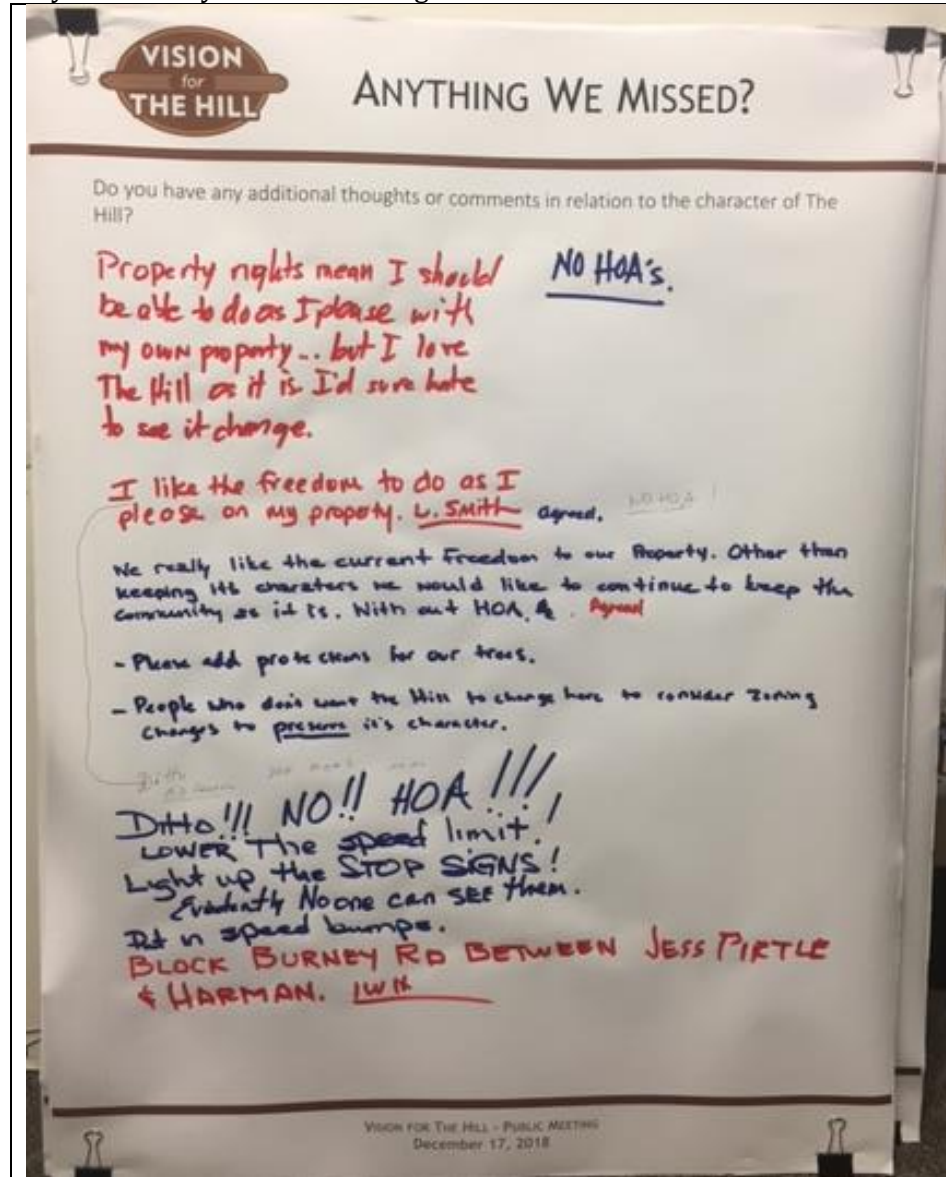 VISION
for
THE HILL
ANYTHING WE MISSED?
Do you have any additional thoughts or comments in relation to the character of The
Hill?
Property rights mean I should
be able to do as I please with
my own property... but I love
The Hill as it is. I'd sure hate
to see it change.
NO HOA's.
I like the freedom to do as I
please on my property. L. Smith Agreed.
NO HOA!
We really like the current Freedom to our Property. Other than
keeping its charaters we would like to continue to keep the
community as it is. With out HOA, Agreed
- Please add protections for our trees.
- People who don't want the Hill to change have to consider zoning
changes to preserve it's character.
Ditto
Ditto!!! NO!! HOA!!!!
LOWER The speed limit!
Light up the STOP SIGNS!
Evidently No one can SEE them.
Put in speed bumps.
BLOCK BURNEY RD BETWEEN JESS PIRTLE
& HARMAN.
VISION FOR THE HILL - PUBLIC MEETING
December 17, 2018